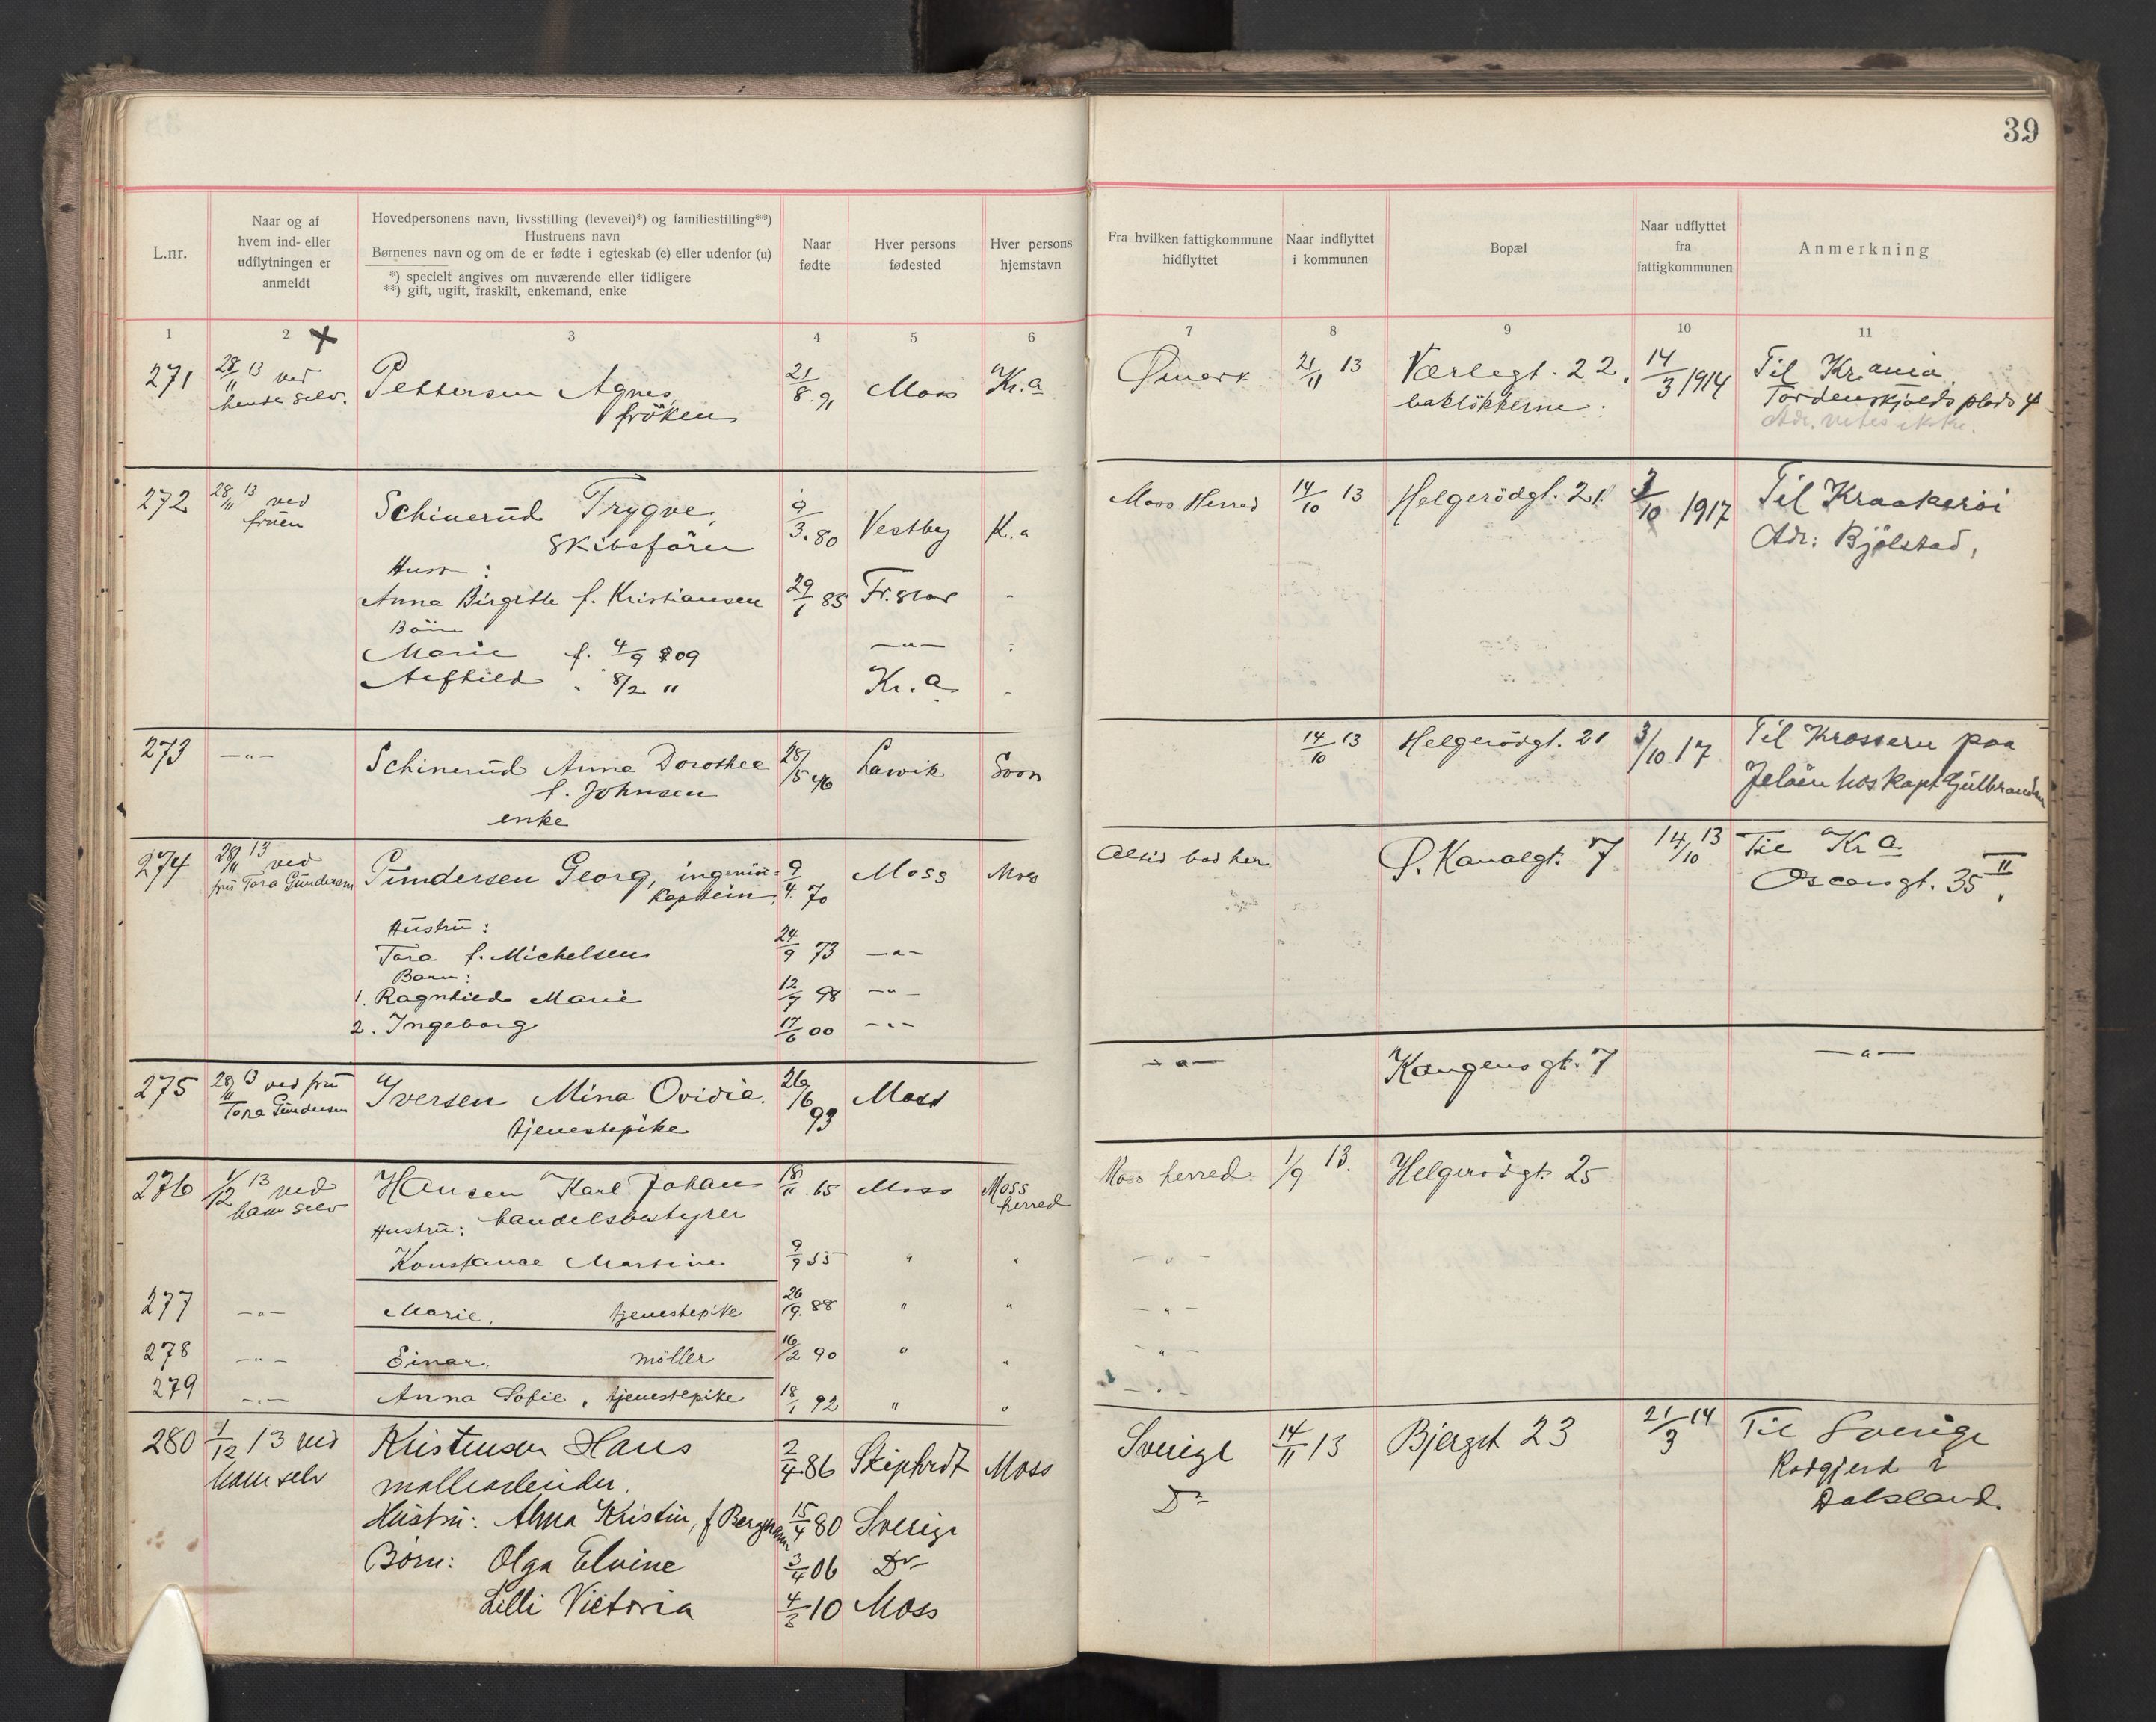 39
L.nr.
Naar og af
hvem ind- eller
udflytningen er
anmeldt
Hovedpersonens navn, livsstilling (levevei)*) og familiestilling**)
Hustruens navn
Børnenes navn og om de er fødte i egteskab (e) eller udenfor (u)
*) specielt angives om nuværende eller tidligere
**) gift, ugift, fraskilt, enkemand, enke
Naar
fødte
Hver persons
fødested
Hver persons
hjemstavn
Fra hvilken fattigkommune
hidflyttet
Naar indflyttet
i kommunen
Bopæl
Naar udflyttet
fra
fattigkommunen
Anmerkning
1 2 x 3 4 5 6 7 8 9 10 11
271 28/11 13 ved Pettersen Agnes, 21/8.91 Moss Kr.a Ømark 21/11 13 Værlegt. 22. 14/3 1914 Til Kr.ania
hende selv. fröken baklökkerne. Tordenskjolds plads 4
Adr. vites ikke.
272 28/11 13 ved Schinerud Trygve, 9/3.80 Vestby K.a Moss Herred 14/10 13 Helgerödgt. 21 3/10 1917 Til Kraakeröi
fruen Skibsförer Adr: Bjölstad,
Hustr:
Anna Birgitte f. Kristiansen 29/1 85 Fr.stad -
Börn
Marie f. 4/9 09 —"—
Alfhild " 8/2 " Kr.a -
273 —"— Schinerud Anna Dorothea 28/5 46 Larvik Soon 14/10 13 Helgerödgt. 21 3/10 17 Til Krossern paa
f. Johnsen Jelöen hos Kapt Gulbrandsen
enke
274 28/11 13 ved Gundersen Georg, ingeniör- 9/4.70 Moss Moss Altid bod her Ø. Kanalgt. 7 14/10 13 Til Kr a
fru Tora Gundersen kaptein, Oscarsgt. 35 II.
Hustru:
Tora f. Michelsen 24/9 73 —"—
Barn:
1. Ragnhild Marie 12/7 98 —"—
2. Ingeborg 17/6 00 —"—
275 28/11 13 ved fru Iversen Mina Ovidia. 26/6 93 Moss —"— Kongens gt. 7 —"—
Tora Gundersen tjenestepike
276 1/12 13 ved Hansen Karl Johan 18/11.65 Moss Moss herred Moss herred 1/9 13. Helgerödgt. 25
ham selv handelsbestyrer
Hustru:
Konstance Martine 9/9 55 " " —"—
277 —"— Marie, tjenestepike 26/9.88 " " —"—
278 —"— Einar, möller 16/2 90 " " —"—
279 —"— Anna Sofie, tjenestepike 18/1 92 " " —"—
280 1/12 13 ved Kristensen Hans 2/4 86 Skiptvedt Moss Sverige 14/11 13 Bjerget 23 21/3 14 Til Sverige
ham selv mollearbeider. Do i
Dalsland.
Hustru: Alma Kristin, f Bergmann 15/4 80 Sverige
Börn: Olga Elvine 3/4 06 Do
Lilli Victoria 4/3 10 Moss